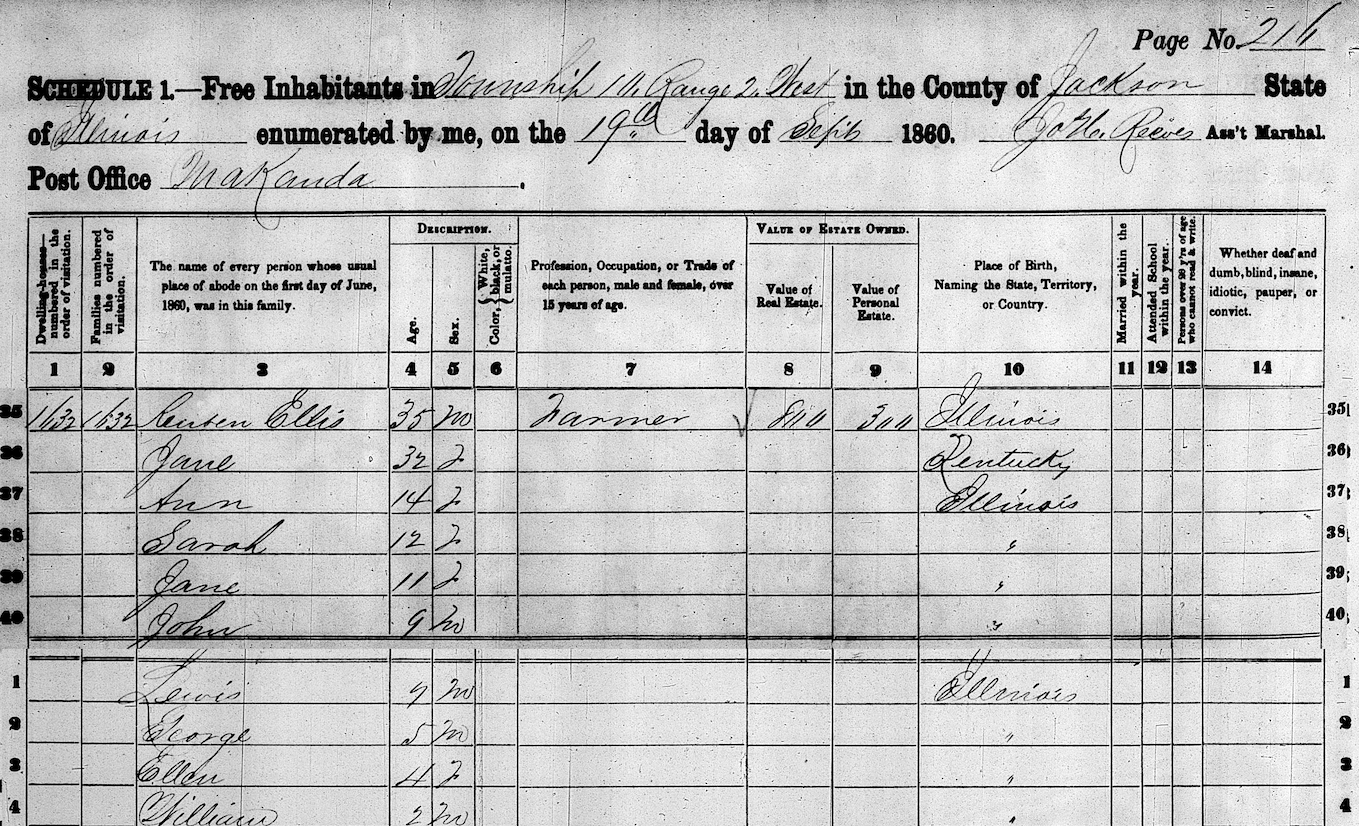 Page No. 216
SCHEDULE 1.—Free Inhabitants in Township 10. Range 2. West in the County of Jackson State
of Illinois enumerated by me, on the 19th day of Sept 1860. Jo H. Reeves Ass't Marshal.
Post Office Makanda.
Dwelling-houses— numbered in the order of visitation.
Families numbered in the order of visitation.
The name of every person whose usual place of abode on the first day of June, 1860, was in this family.
DESCRIPTION.
Age.
Sex.
Color, { White, black, or mulatto.
Profession, Occupation, or Trade of each person, male and female, over 15 years of age.
VALUE OF ESTATE OWNED.
Value of Real Estate.
Value of Personal Estate.
Place of Birth, Naming the State, Territory, or Country.
Married within the year.
Attended School within the year.
Persons over 20 y'rs of age who cannot read & write.
Whether deaf and dumb, blind, insane, idiotic, pauper, or convict.
1 2 3 4 5 6 7 8 9 10 11 12 13 14
35 1632 1632 Reuben Ellis 35 m Farmer 800 300 Illinois 35
36 Jane 32 f Kentucky 36
37 Ann 14 f Illinois 37
38 Sarah 12 f " 38
39 Jane 11 f " 39
40 John 9 m " 40
1 Lewis 7 m Illinois 1
2 George 5 m " 2
3 Ellen 4 f " 3
4 William 2 m " 4